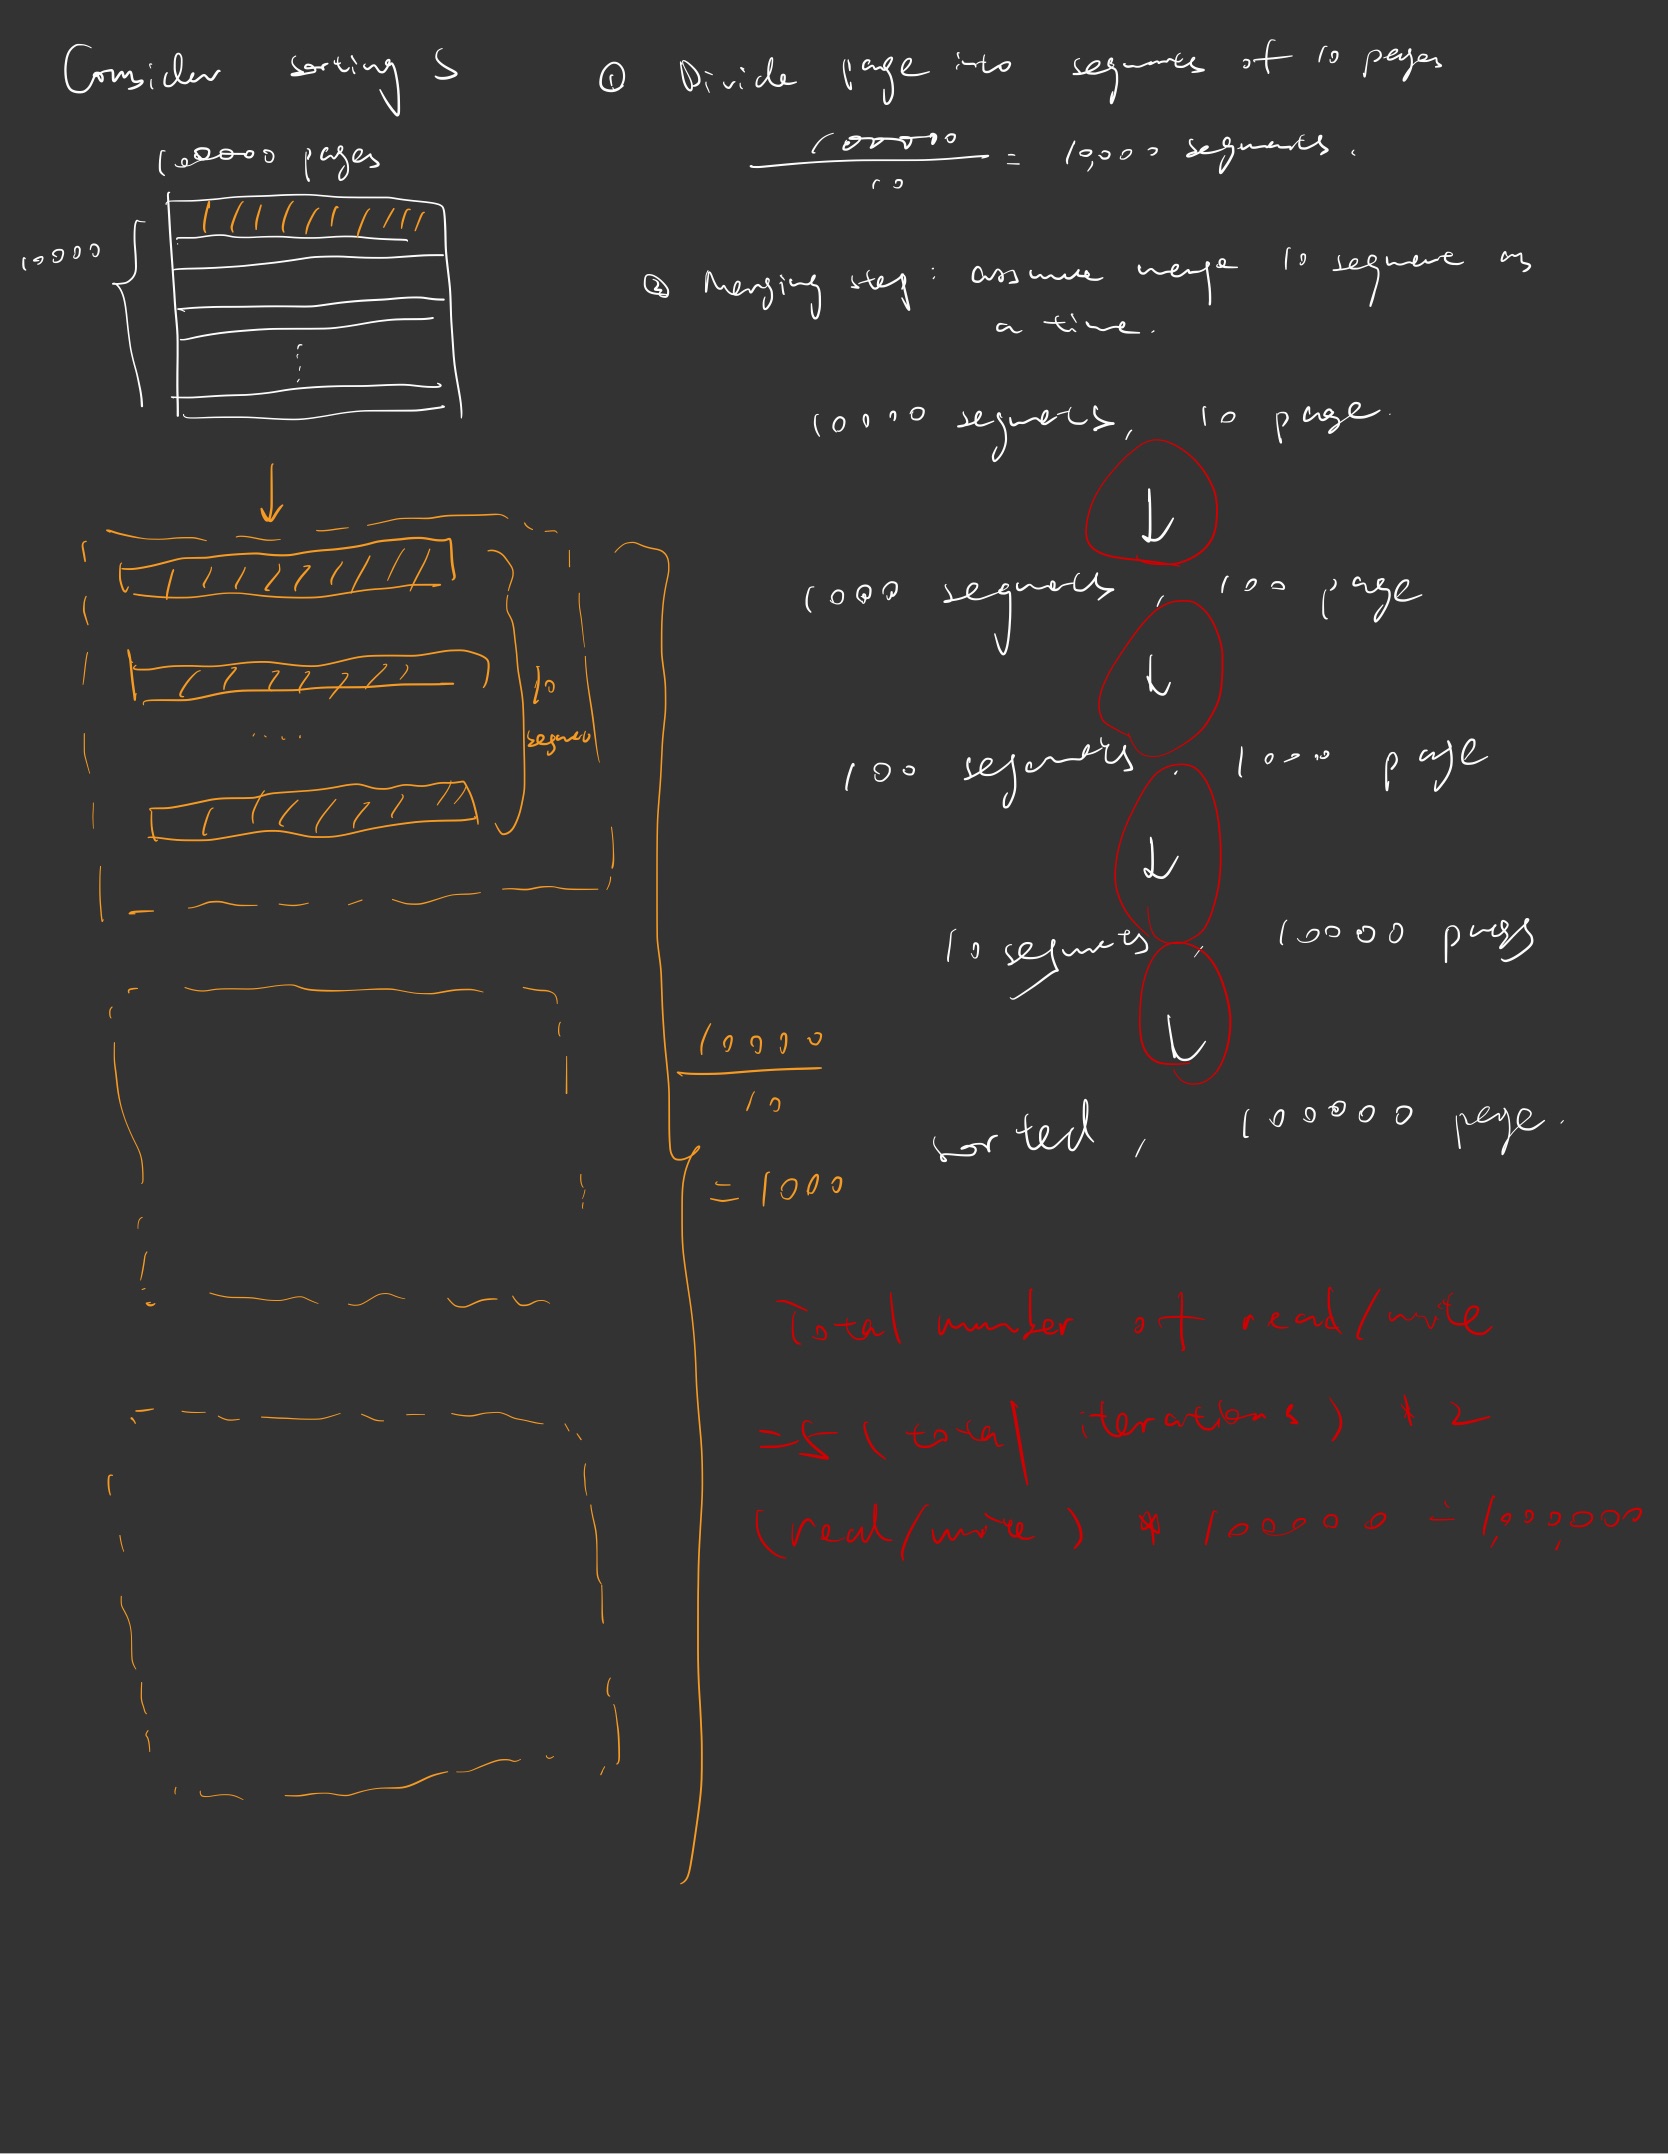 Consider sorting S
100000 pages
10000
① Divide page into segments of 10 pages
100000
10
= 10,000 segments.
② Merging step : assume merge 10 segment as
a time.
10000 segments, 10 page.
↓
1000 segments, 100 page
↓
100 segments, 1000 page
↓
10 segments, 10000 pages
↓
sorted, 100000 page.
↓
10
segmen
10000
10
= 1000
Total number of read/write
= 5 (total iterations) * 2
(read/write) * 100000 = 1,000,000